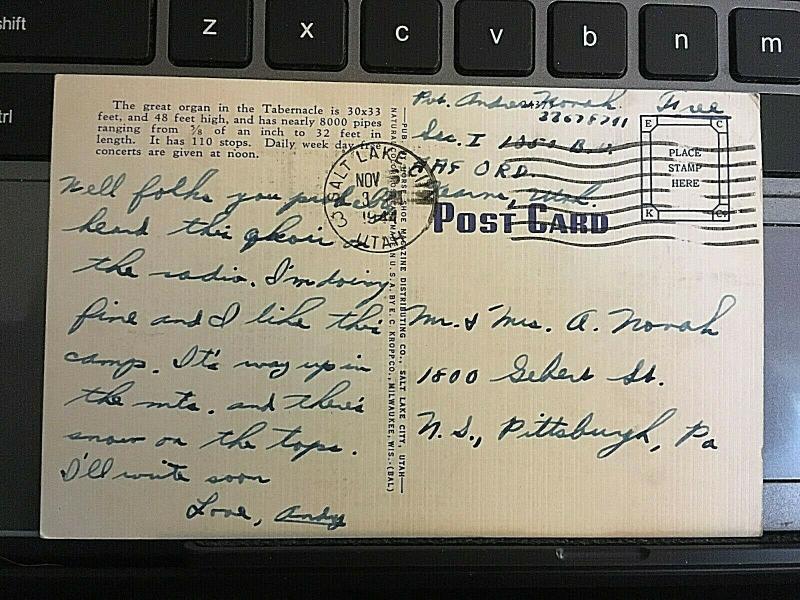 shift
z
x
c
v
b
n
m
trl
The great organ in the Tabernacle is 30x33
feet, and 48 feet high, and has nearly 8000 pipes
ranging from ⅝ of an inch to 32 feet in
length. It has 110 stops. Daily week day free
concerts are given at noon.
Well folks you probably
heard this choir
the radio. I'm doing
fine and I like this
camp. It's way up in
the mts. and there's
snow on the tops.
I'll write soon
Love, Andy
SALT LAKE
NOV
3
1944
UTAH
SHOE MAGAZINE DISTRIBUTING CO., SALT LAKE CITY, UTAH
NATURAL U. S. A. BY E. C. KROPP CO., MILWAUKEE, WIS. (BAL)
Pvt. Andrew Novak Free
Sec. I B.U.
AAF ORD.
Utah.
POST CARD
E C
PLACE
STAMP
HERE
K Co
Mr. & Mrs. A. Novak
1800 Gebert St.
N.S., Pittsburgh, Pa